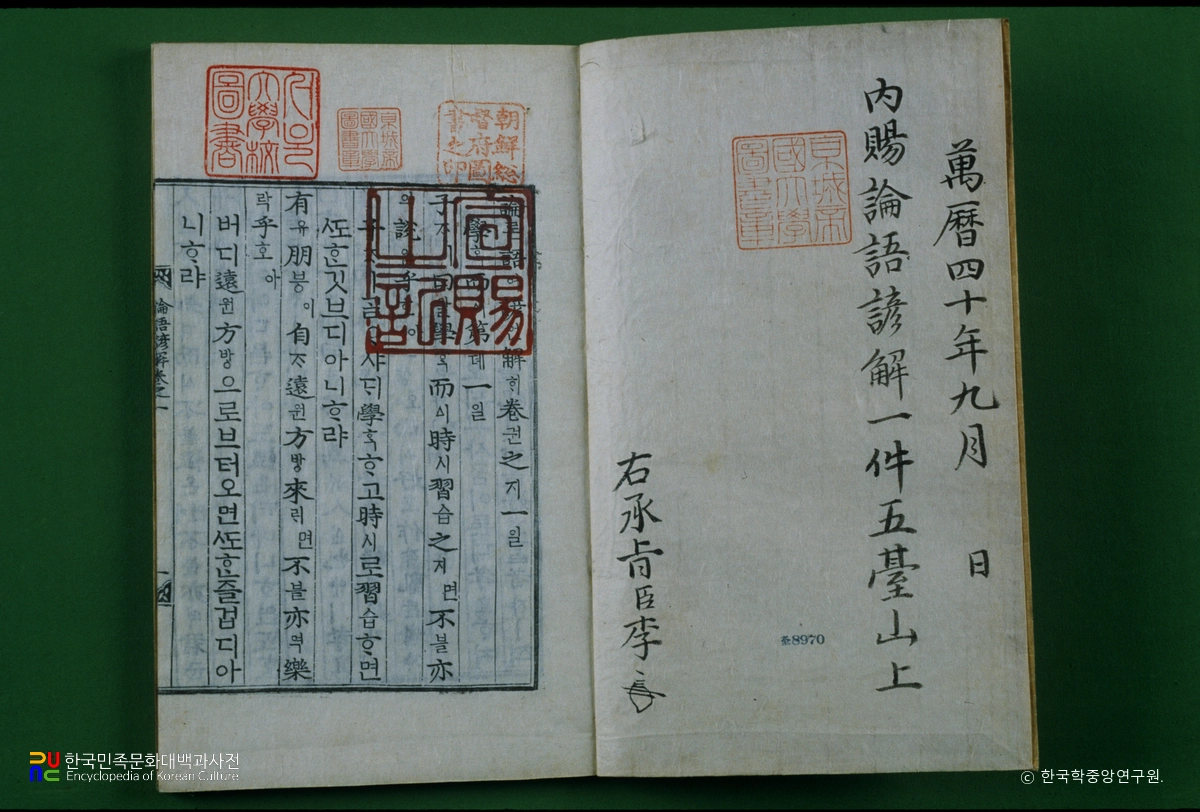 萬曆四十年九月 日
內賜論語諺解一件五臺山上
右承旨臣李
奎8970
京城帝
國大學
圖書章
朝鮮總
督府圖
書之印
京城帝
國大學
圖書章
서울
大學校
圖書
宣賜
之記
論語諺解ᄒᆡ卷권之지一일
學而第뎨一일
子ᄌᆞㅣ曰왈學ᄒᆞᆨ而이時시習습之지면不블亦
說열乎호아
子ᄌᆞㅣᄀᆞᆯᄋᆞ샤ᄃᆡ學ᄒᆞᆨᄒᆞ고時시로習습ᄒᆞ면
ᄯᅩᄒᆞᆫ깃브디아니ᄒᆞ랴
有유朋븡이自ᄌᆞ遠원方방來ᄅᆡ면不블亦역樂
락乎호아
버디遠원方방으로브터오면ᄯᅩᄒᆞᆫ즐겁디아
니ᄒᆞ랴
論語諺解卷之一
一
한국민족문화대백과사전
Encyclopedia of Korean Culture
ⓒ 한국학중앙연구원.